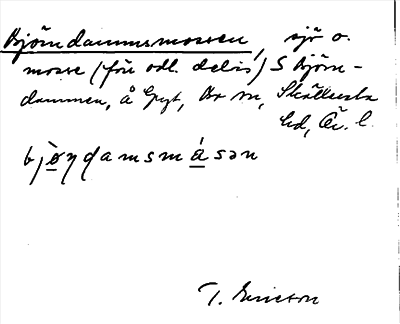 Björndammsmossen, sjö o.
mosse (före odl. delvis) S Björn-
dammen, å Gryt, Br sn, Skällersta
hd, Ör. l.
bjø̱ɳdamsmá̱sən
T. Ericson